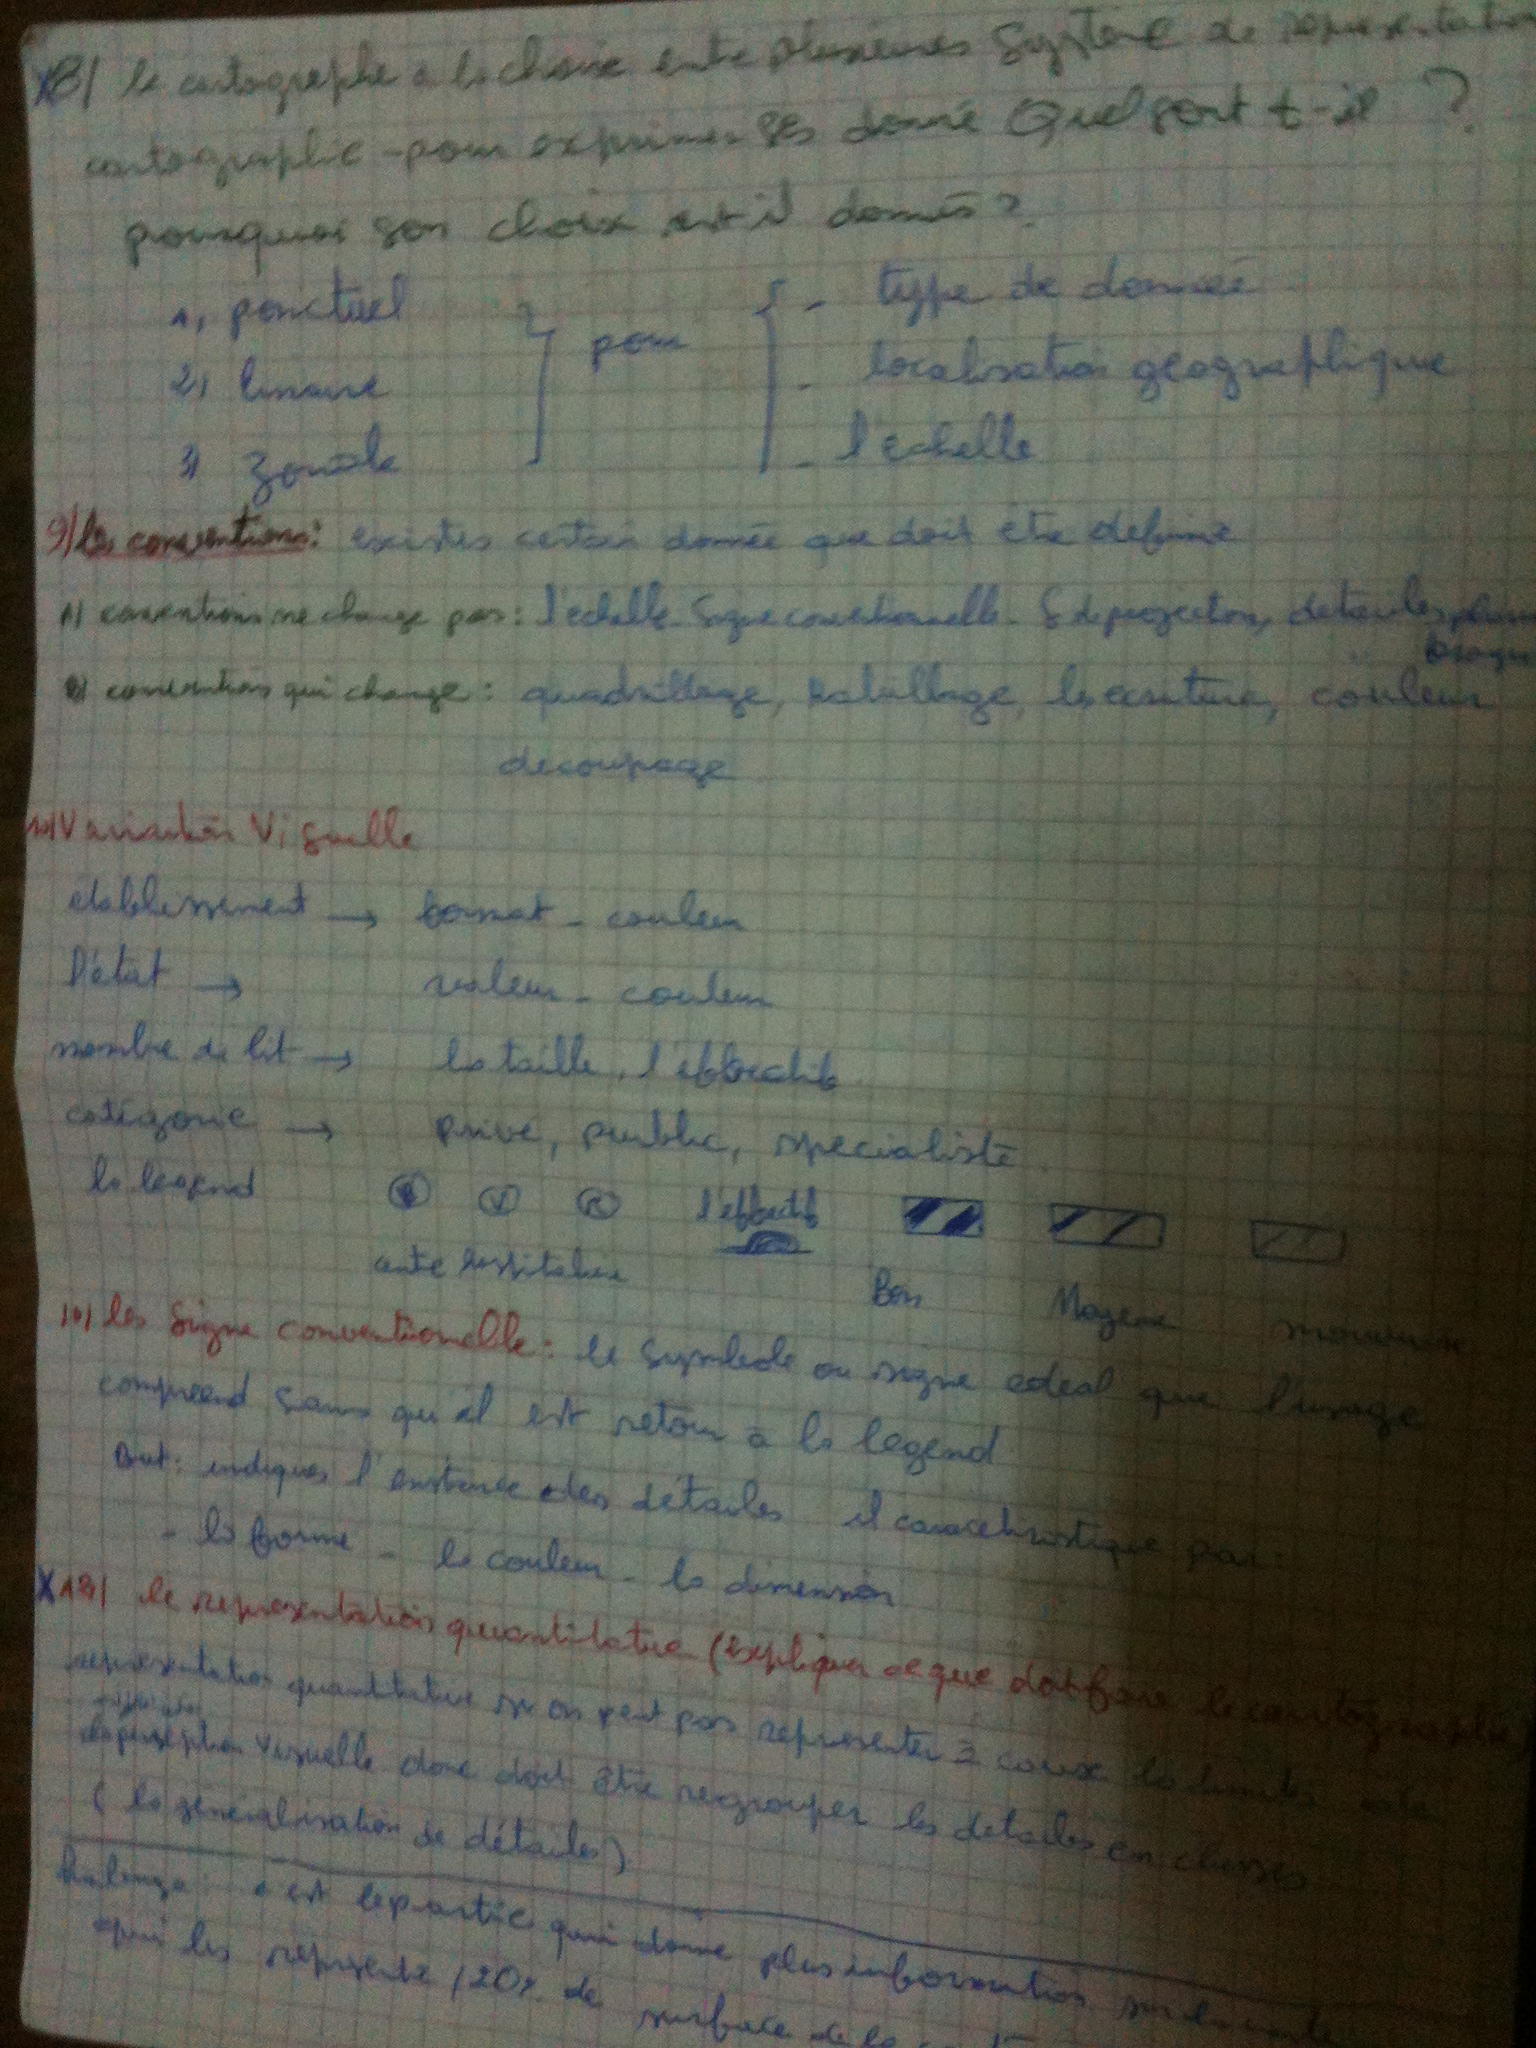 X8/ le cartographe a le choix entre plusieures système de représentation
cartographie pour exprimer ses donné Quel sont t-il ?
pourquoi son choix est il donnés ?
1, ponctuel } pour { - type de donnéé
2, linaire - localisation géographique
3, zonale - l'échelle
9/ les conventions: existes certain donnée que doit être définie
A) conventions ne change pas: l'échelle - Signe conventionnelle - S de projection, détailes
B) conventions qui change: quadrillage, habillage, les ecriture, couleur
decoupage
10/ Variation Visuelle
etablessement → format - couleur
D'état → valeur - couleur
nombre de lit → la taille, l'effectif
catégorie → privé, public, specialisté
la legend l'effectif
hospitalier Bon Moyene
10/ les Signe conventionelle: le symbole ou signe edeal que l'usage
comprend sans qu'il est retour à la legend
But: indiques l'existence des détailes il caractéristique par:
- la forme - la couleur - la dimension
X 12/ le représentation quantitative (expliquer ce que doit faire le cartographe
représentation quantitative on peut pas représenter à les limites
visuelle donc doit être regrouper les détailes en classes
( la généralisation de détailes)
c'est le partie qui donne plus information sur la carte
qui les représente 120% de surface de la